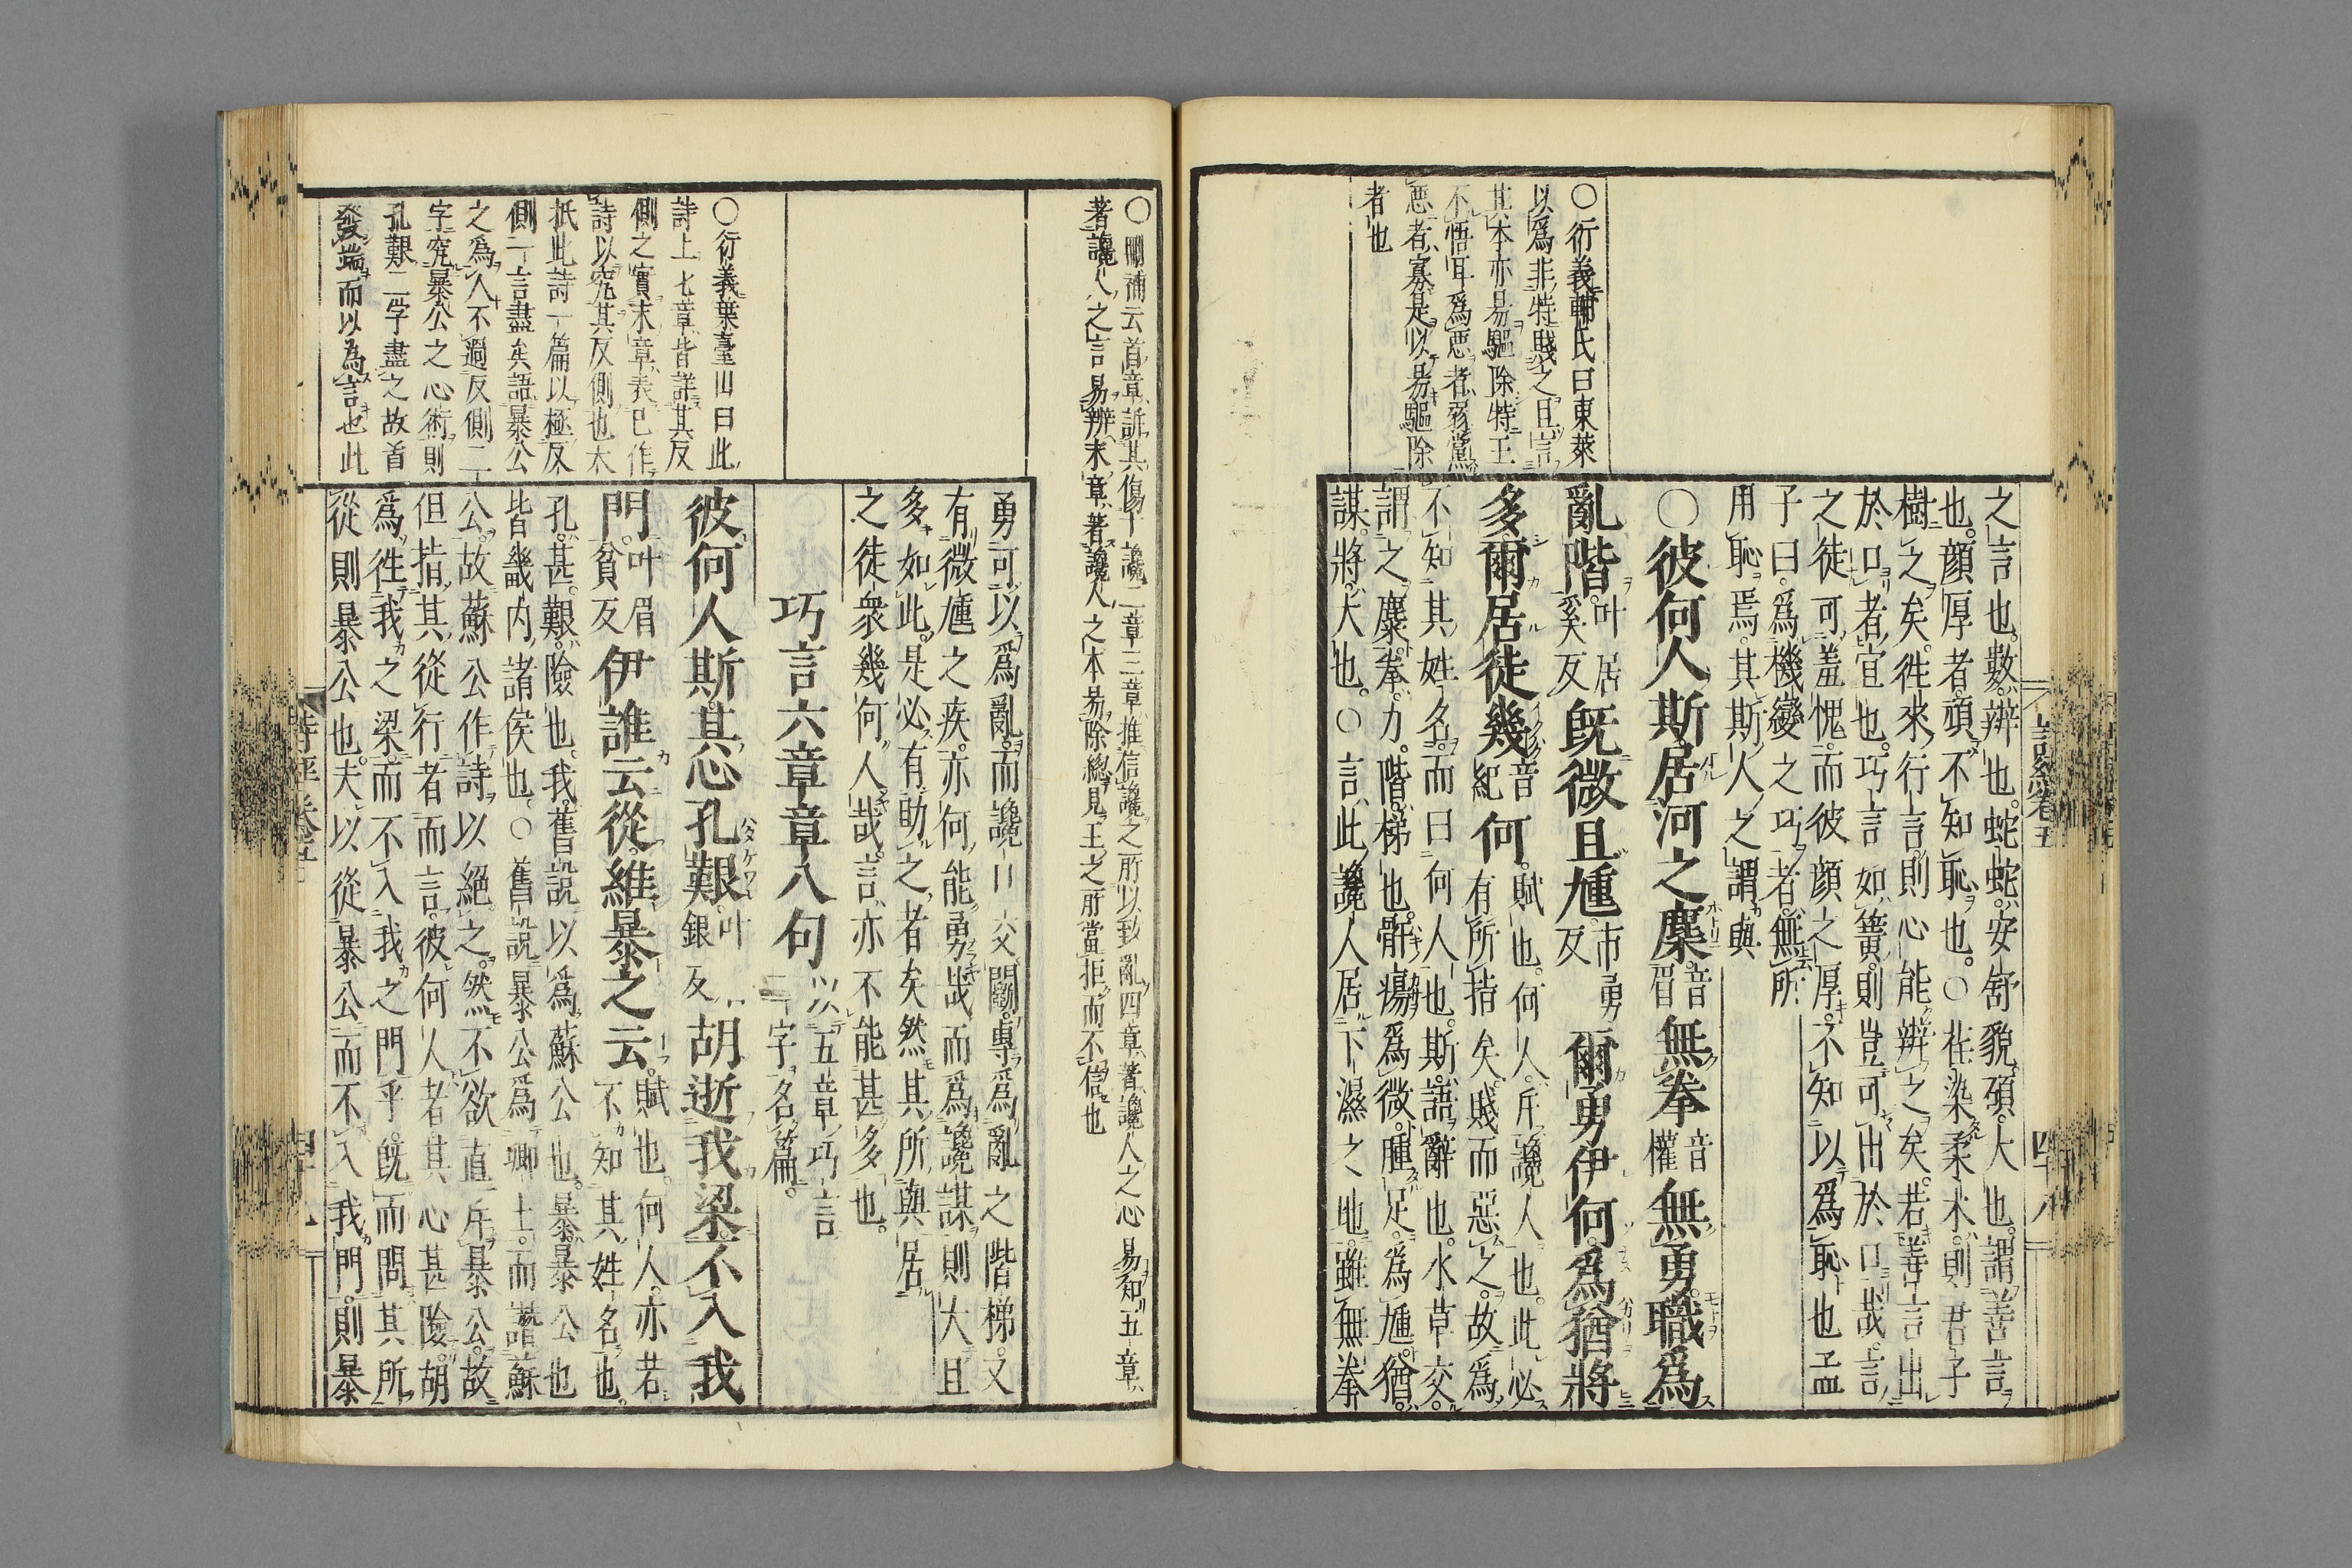 詩經卷五
四十八
之言也。數。辨也。蛇蛇。安舒貌。碩。大也。謂善言
也。顏厚者。頑不知恥也。○荏染柔木。則君子
樹之矣。徃來行言。則心能辨之矣。若善言出
於口者。宜也。巧言如簧。則豈可出於口哉。言
之徒可羞愧。而彼顏之厚。不知以爲恥也孟
子曰。爲機變之巧者。無所
用恥焉。其斯人之謂與
○彼何人斯居河之麋音眉無拳音權無勇。職爲
亂階。叶居奚反旣微且尰。市勇反爾勇伊何。爲猶將
多爾居徒幾音紀何。賦也。何人。斥讒人也。此必
有所指矣。賤而惡之。故爲
不知其姓名。而曰何人也。斯。語辭也。水草交。
謂之麋。拳。力。階。梯也。骭瘍爲微。腫足爲尰。猶。
謀。將。大也。○言此讒人居下濕之地。雖無拳
○衍義輔氏曰東萊
以爲非特賤之且言
其本亦易驅除特王
不悟耳爲惡者弱黨
惡者寡是以易驅除
者也
○刪補云首章訴其傷于讒二章三章推信讒之所以致亂四章著讒人之心易知五章
著讒人之言易辨末章著讒人之本易除總見王之所當拒而不信也
勇可以爲亂。而讒口交鬬。專爲亂之階梯。又
有微尰之疾。亦何能勇哉而爲讒謀則大且
多如此。是必有助之者矣然其所與居
之徒衆幾何人哉。言亦不能甚多也。
巧言六章章八句以五章巧言二字名篇。
彼何人斯。其心孔艱。叶銀反胡逝我梁。不入我
門。叶眉貧反伊誰云從。維暴之云。賦也。何人。亦若
不知其姓名也。
孔。甚。艱。險也。我。舊說以爲蘇公也。暴。暴公也
皆畿內諸侯也。○舊說暴公爲卿士。而譖蘇
公。故蘇公作詩以絕之。然不欲直斥暴公。故
但指其從行者而言。彼何人者其心甚險。胡
爲徃我之梁。而不入我之門乎。旣而問其所
從則暴公也。夫以從暴公。而不入我門。則暴
○衍義葉臺山曰此
詩上七章皆詳其反
側之實末章表已作
詩以究其反側也大
抵此詩一篇以極反
側一言盡矣語暴公
之爲人不過反側二
字究暴公之心術則
孔艱二字盡之故首
發端而以為言也此